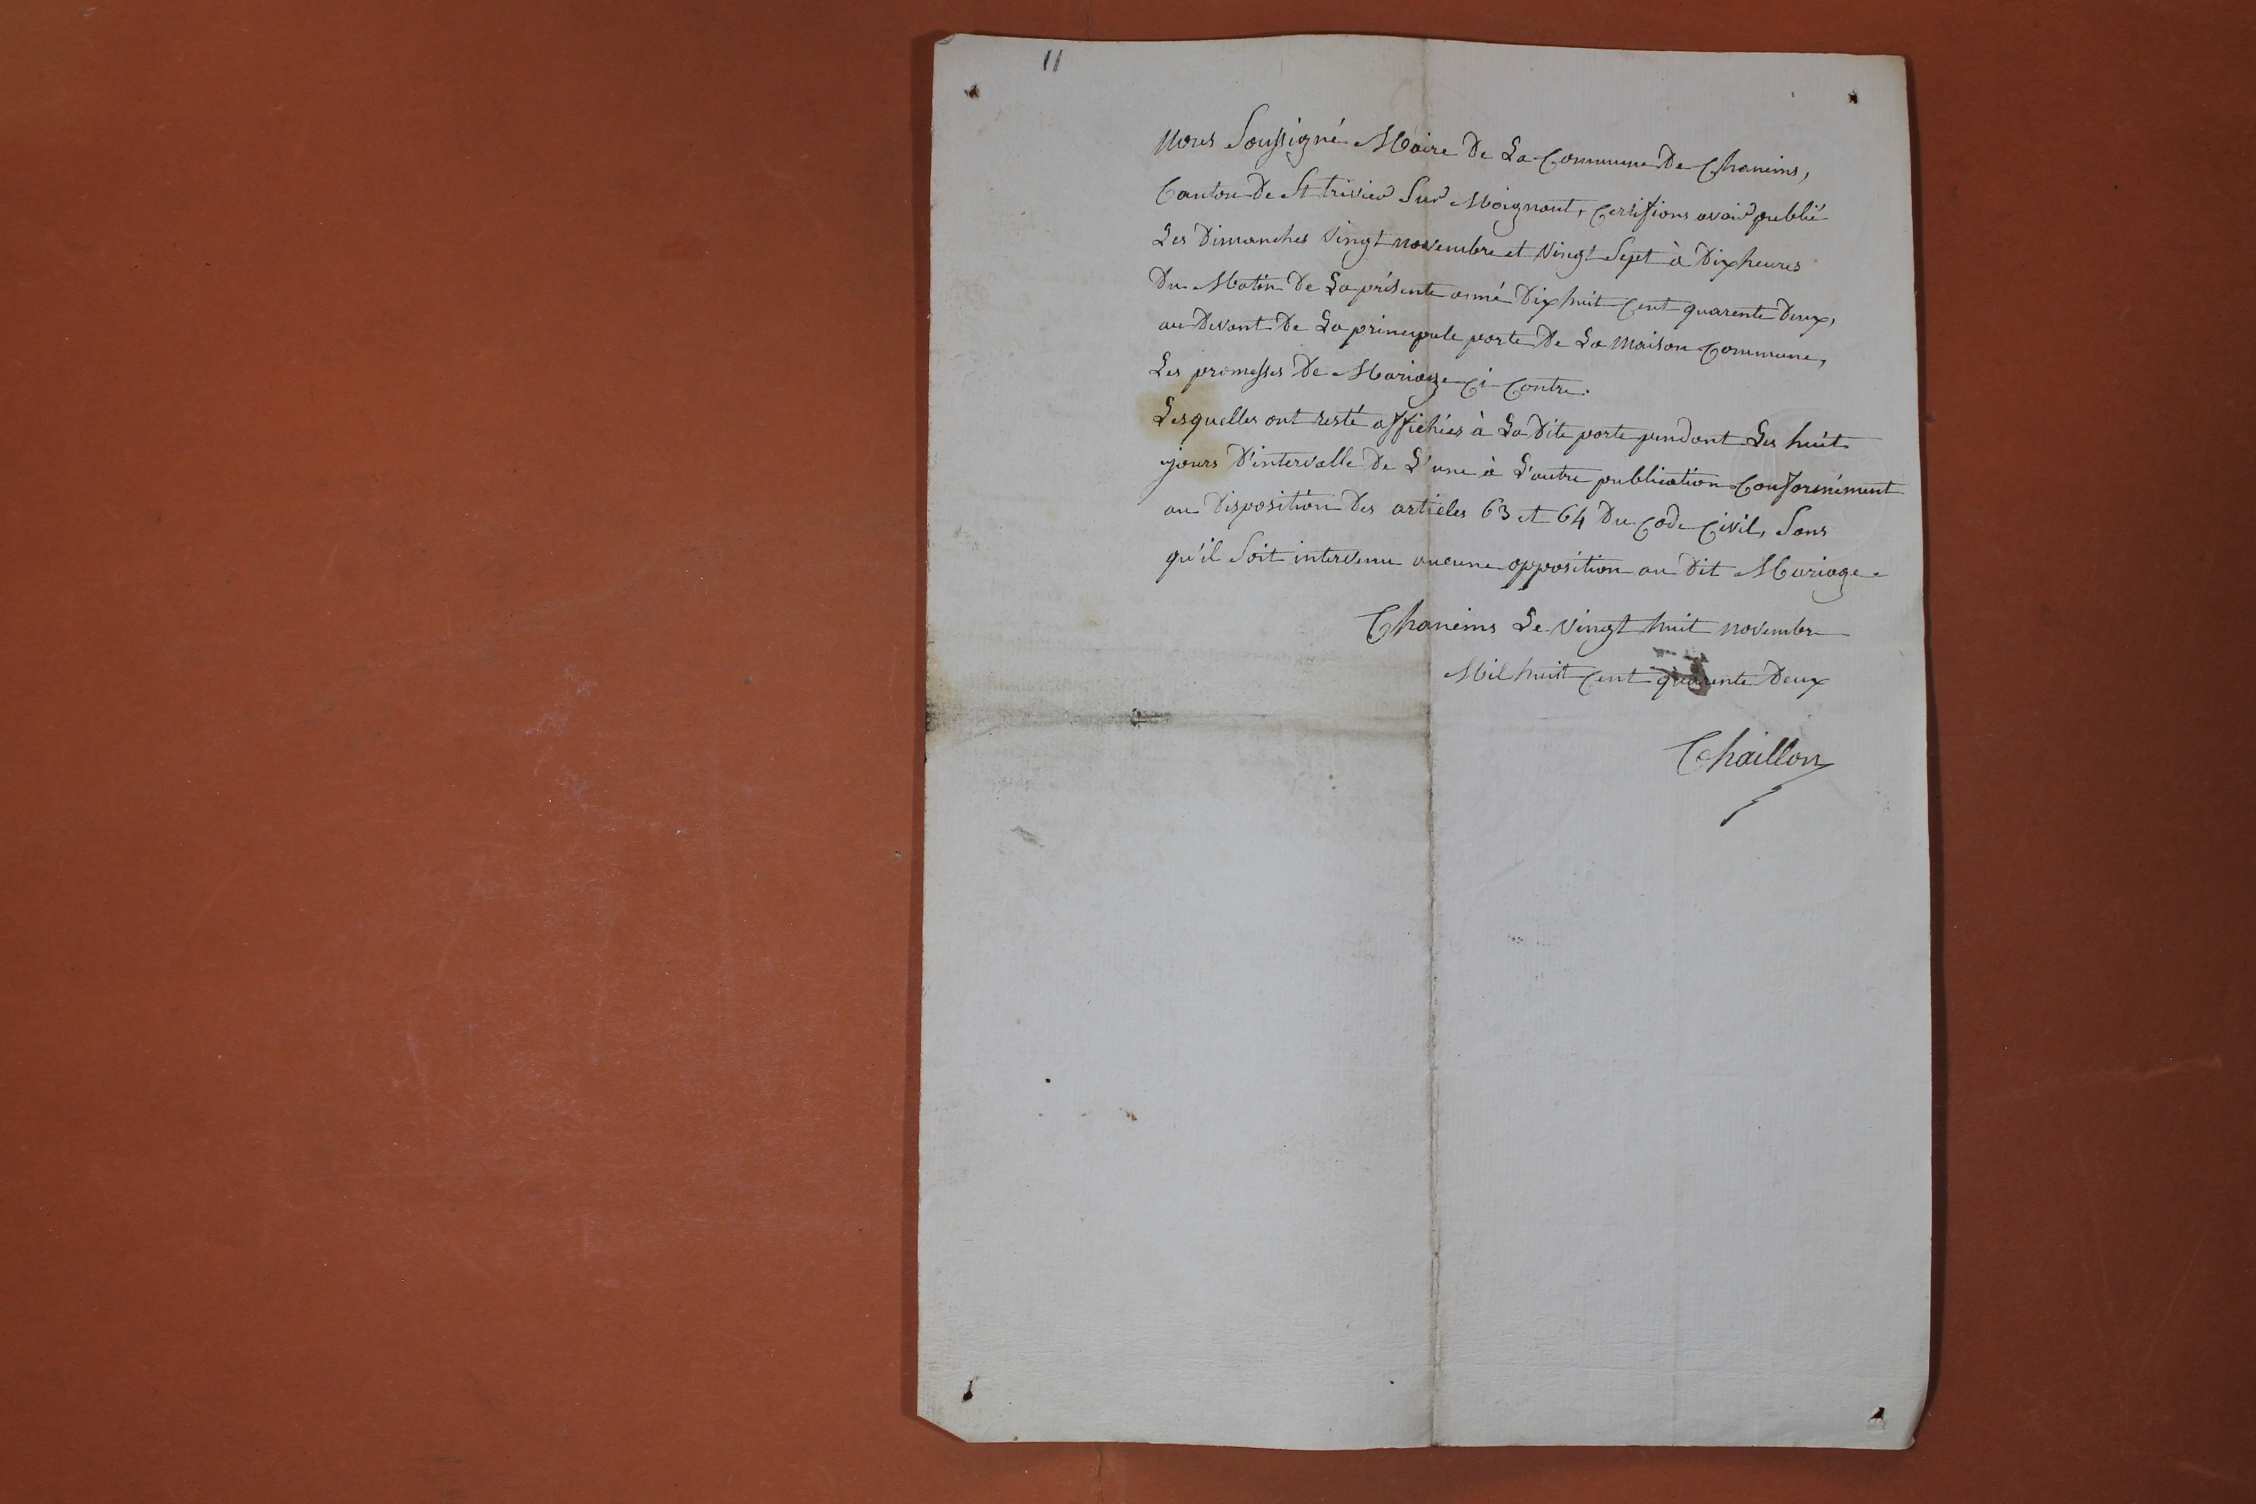 11
Nous Soussigné Maire De La Commune De Chaneins,
Canton De St Trivier Sur Moignant, Certifions avoir publié
Les Dimanches vingt novembre et vingt Sept à Dix heures
Du Matin De La présente anné Dix huit Cent quarente Deux,
au Devant De La principale porte De La Maison Commune,
Les promesses De Mariage Ci Contre.
Lesquelles ont resté affichées à La Dite porte pendant Les huit
jours D'intervalle De L'une à L'autre publication Conformément
au Disposition Des articles 63 et 64 Du Code Civil, Sans
qu'il Soit intervenu aucune opposition au Dit Mariage.
Chaneins Le vingt huit novembre
Mil huit Cent quarente Deux
Chaillon